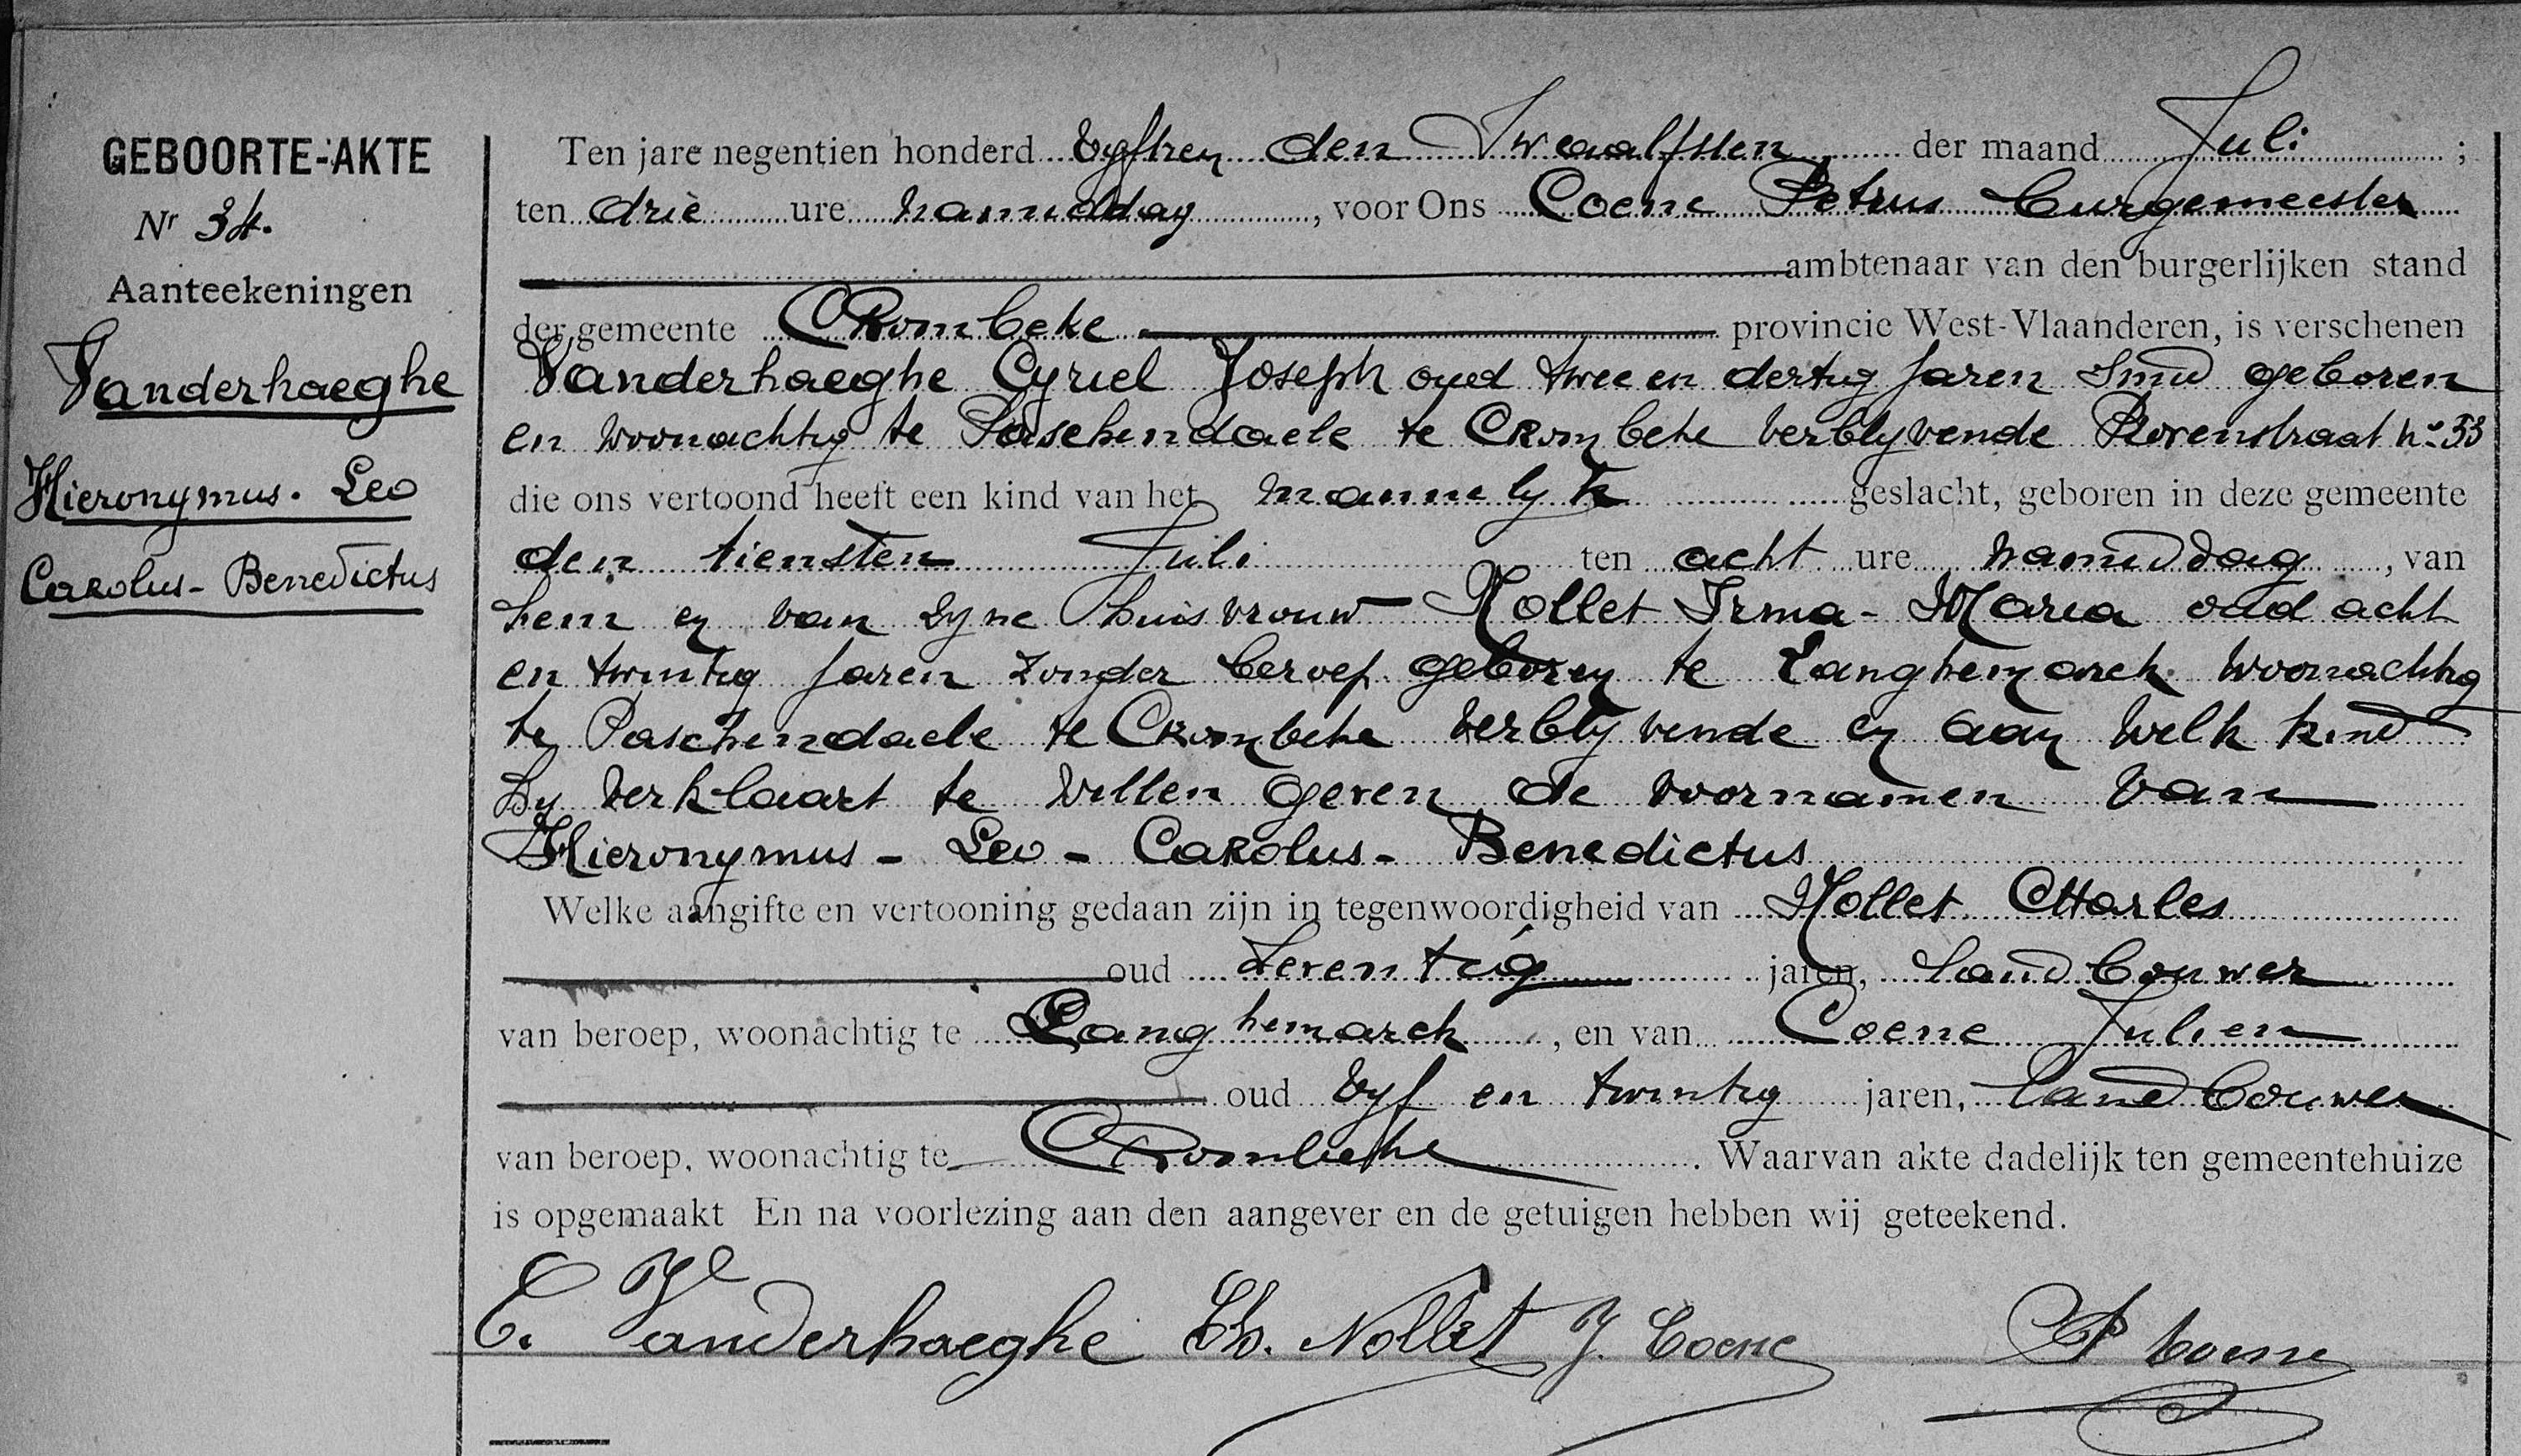 GEBOORTE-AKTE
Nr 34.
Aanteekeningen
Vanderhaeghe
Hieronymus. Leo
Carolus- Benedictus
Ten jare negentien honderd vyftien den Twaalfsten der maand Juli ;
ten drie ure namiddag, voor Ons Coene Petrus burgemeester
ambtenaar van den burgerlijken stand
der gemeente Crombeke provincie West-Vlaanderen, is verschenen
Vanderhaeghe Cyriel Joseph oud twee en dertig jaren smid geboren
en woonachtig te Paschendaele te Crombeke verblyvende n° 53
die ons vertoond heeft een kind van het mannelyk geslacht, geboren in deze gemeente
den tiensten Juli ten acht ure namiddag, van
hem en van zyne huisvrouw Nollet Irma- Maria oud acht
en twintig jaren zonder beroep geboren te Langhemarck woonachtig
te Paschendaele te Crombeke verblyvende en aan welk kind
hy verklaart te willen geven de voornamen van
Hieronymus - Leo - Carolus - Benedictus
Welke aangifte en vertooning gedaan zijn in tegenwoordigheid van Nollet Charles
oud zeventig jaren, landbouwer
van beroep, woonachtig te Langhemarck, en van Coene Julien
oud vyf en twintig jaren, landbouwer
van beroep, woonachtig te Crombeke. Waarvan akte dadelijk ten gemeentehuize
is opgemaakt En na voorlezing aan den aangever en de getuigen hebben wij geteekend.
C. Vanderhaeghe Ch. Nollet J. Coene P Coene